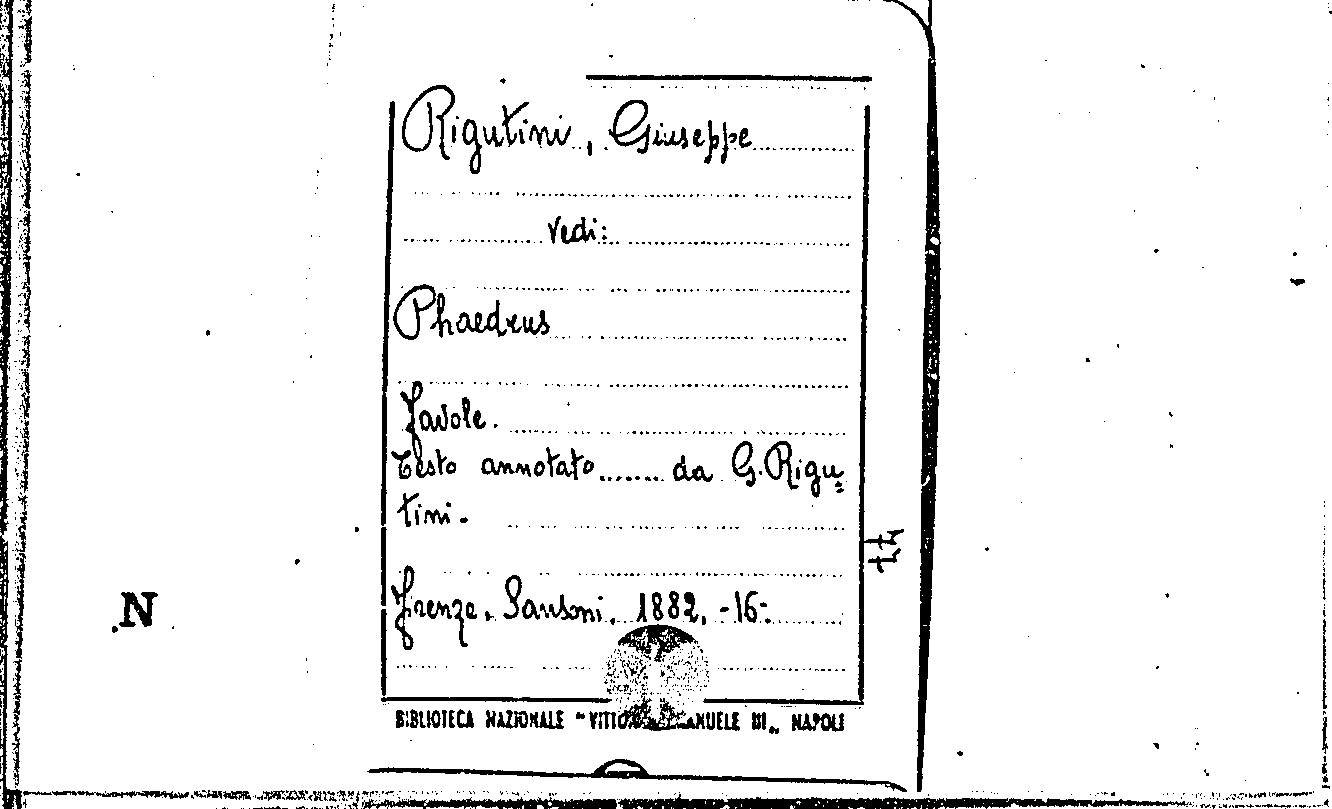 Rigutini, Giuseppe
vedi:
Phaedrus
Favole.
Testo annotato....... da G. Rigu=
tini.
Firenze. Sansoni. 1882. -16-
BIBLIOTECA NAZIONALE "VITTO ANUELE III„ NAPOLI
.N